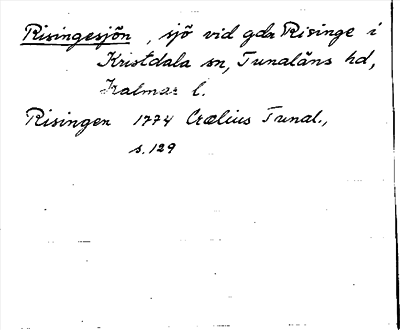 Risingesjön, sjö vid gda Risinge i
Kristdala sn, Tunaläns hd,
Kalmar l.
Risingen 1774 Crælius Tunal.,
s. 129